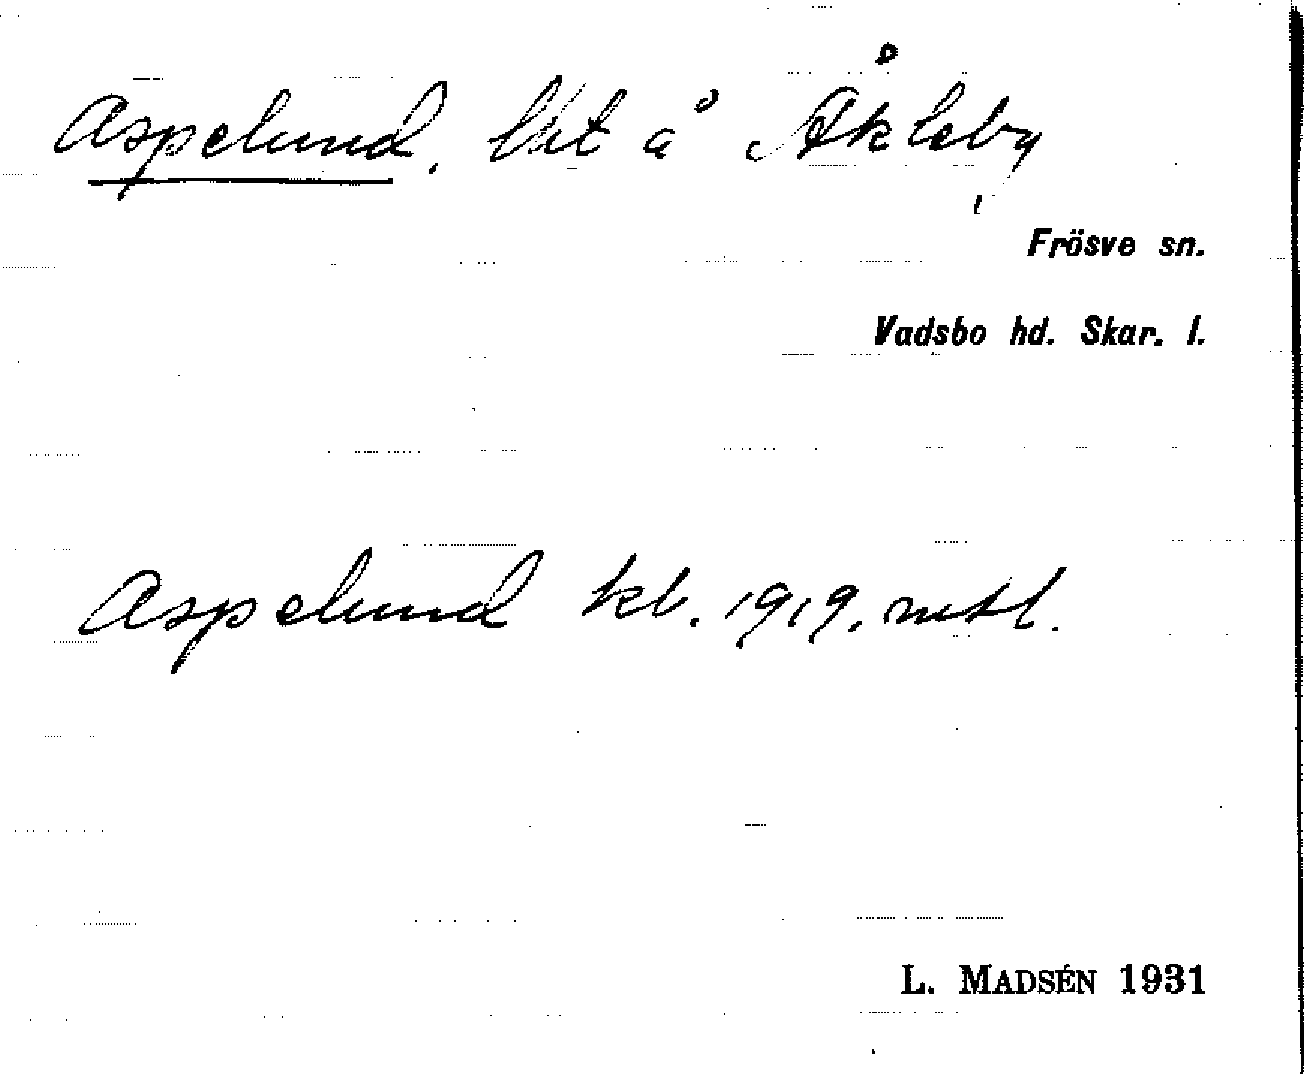 Aspelund, lht å Åkleby
Frösve sn.
Vadsbo hd. Skar. l.
Aspelund kb. 1919. mtl.
L. MADSÉN 1931